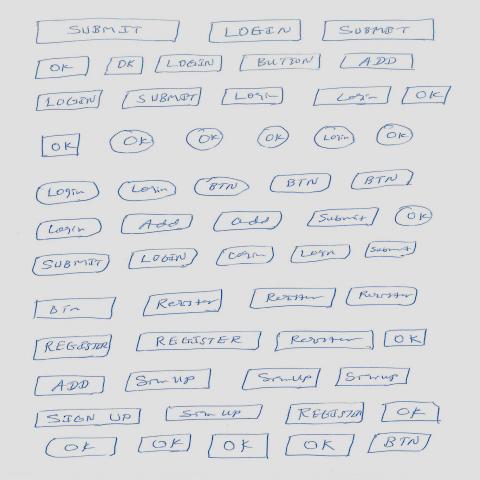 SUBMIT LOGIN SUBMIT
OK OK LOGIN BUTTON ADD
LOGIN SUBMIT Login Login OK
OK OK OK OK Login OK
Login Login BTN BTN BTN
Login Add add Submit OK
SUBMIT LOGIN Login Login Submit
Btn Register Register Register
REGISTER REGISTER Register OK
ADD SignUp SignUp SignUp
SIGN UP Sign UP REGISTER OK
OK OK OK OK BTN